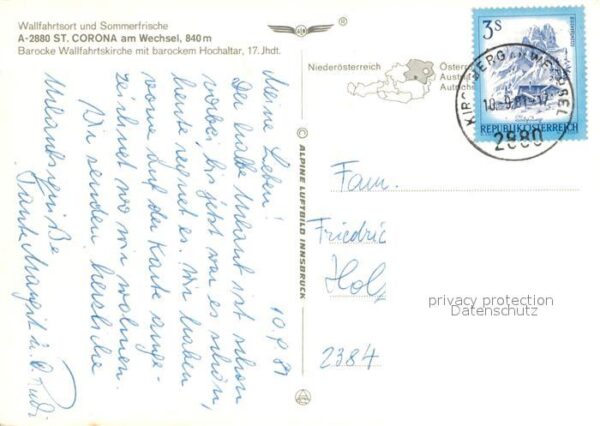 Wallfahrtsort und Sommerfrische
A-2880 ST. CORONA am Wechsel, 840 m
Barocke Wallfahrtskirche mit barockem Hochaltar, 17. Jhdt.
®
Niederösterreich
Österre
Austri
Autrich
3S
REPUBLIK ÖSTERREICH
KIRCHBERG AM WECHSEL
10.-9.81-17
2880
© ALPINE LUFTBILD INNSBRUCK
10.9.81
Meine Lieben!
Der halbe Urlaub ist schon
vorbei, bis jetzt war es schön,
heute regnet es. Wir haben
vorne auf der Karte ange-
zeichnet wo wir wohnen.
Wir senden herzliche
Urlaubsgrüße
Tante Margit u. O. Rudi
Fam.
Friedric
Holz
2384
privacy protection
Datenschutz